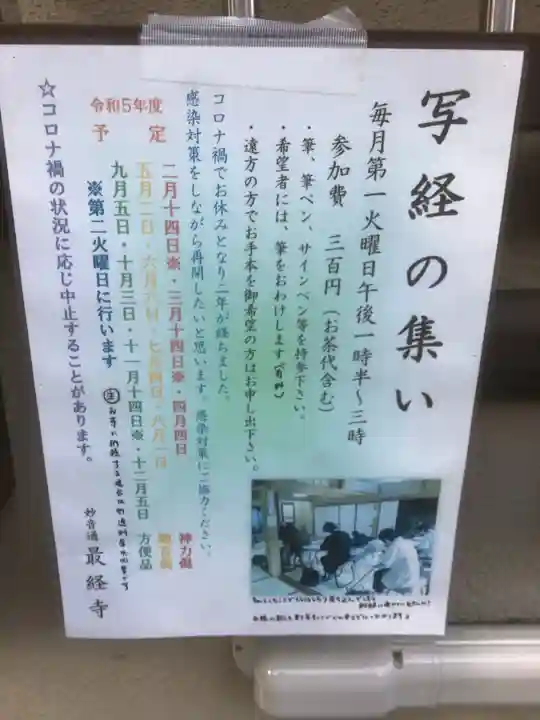 写経の集い
毎月第一火曜日午後一時半～三時
参加費 三百円（お茶代含む）
・筆、筆ペン、サインペン等を持参下さい。
・希望者には、筆をおわけします（有料）
・遠方の方でお手本を御希望の方はお申し出下さい。
コロナ禍でお休みとなり二年が経ちました。
感染対策をしながら再開したいと思います。感染対策にご協力ください。
令和5年度
予定
二月十四日※・三月十四日※・四月四日 神力偈
五月二日・六月六日・七月四日・八月一日
九月五日・十月三日・十一月十四日※・十二月五日 方便品
※第二火曜日に行います
☆コロナ禍の状況に応じ中止することがあります。
妙音通 最経寺